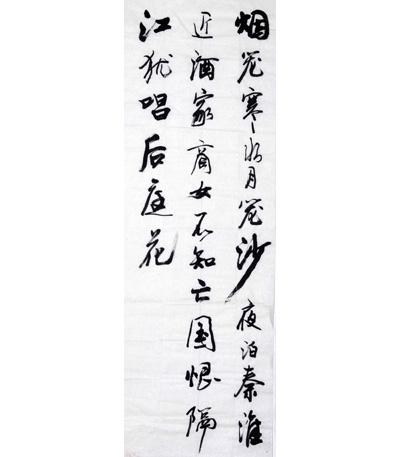 烟笼寒水月笼沙夜泊秦淮
近酒家商女不知亡国恨隔
江犹唱后庭花